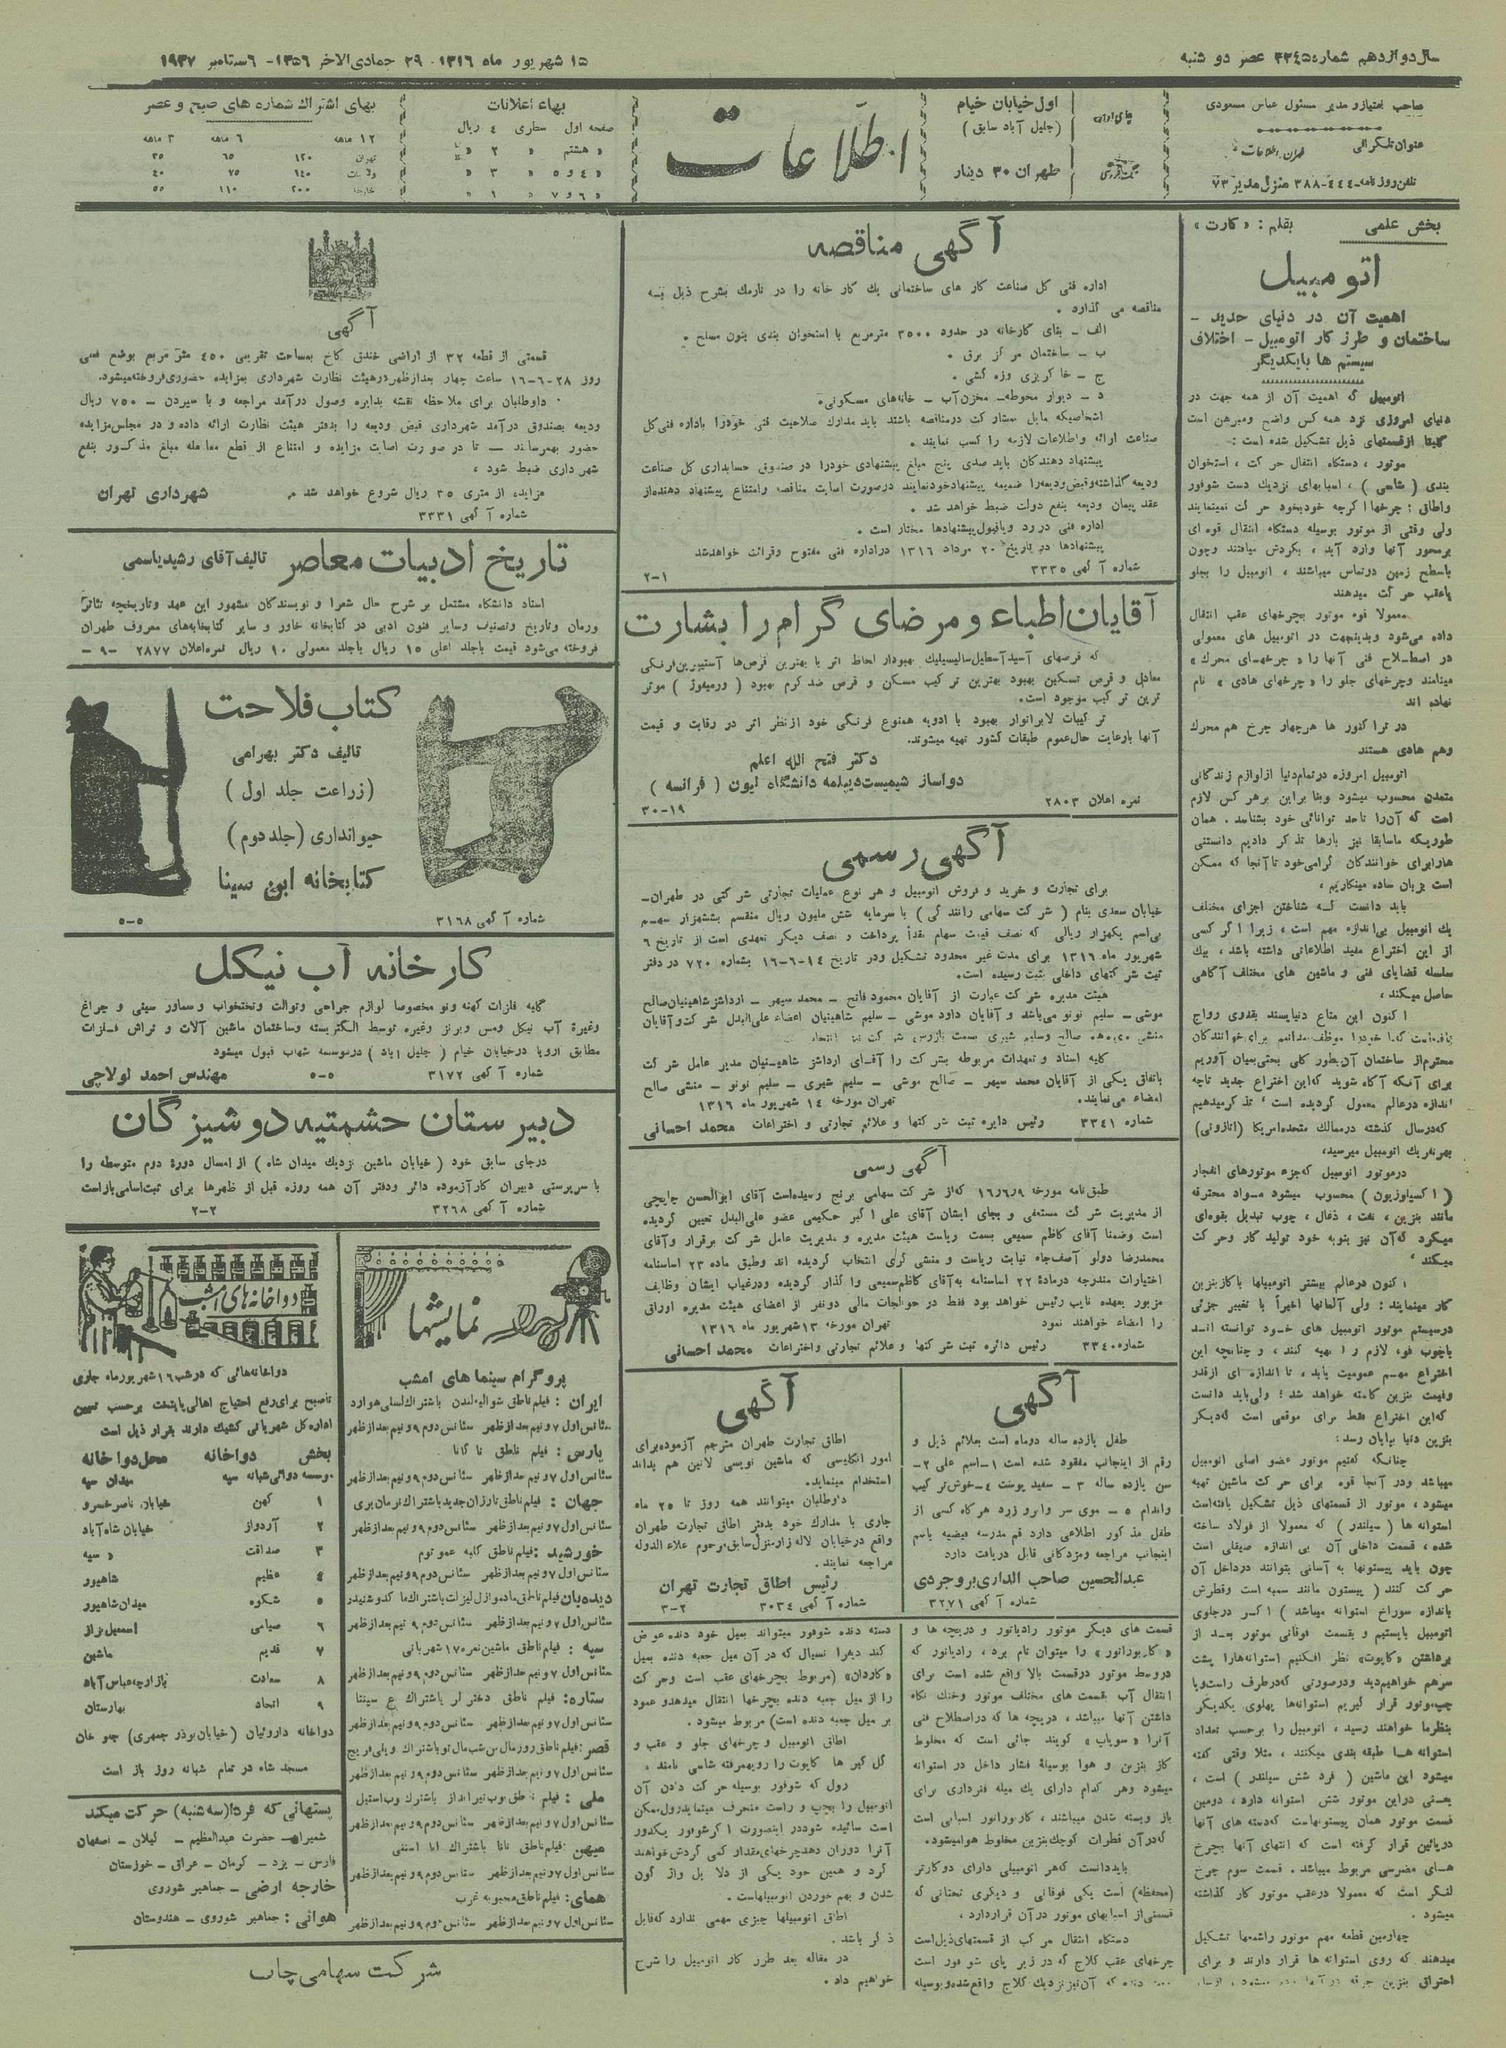 سال دوازدهم شماره ۳۳۴۵ عصر دو شنبه
۱۵ شهریور ماه ۱۳۱۶ - ۲۹ جمادی‌الاخر ۱۳۵۶ - ۶ سپتامبر ۱۹۳۷
صاحب امتیاز و مدیر مسئول عباس مسعودی
عنوان تلگرافی
طهران اطلاعات
تلفن روزنامه ۴۴۴-۳۸۸ منزل مدیر ۷۳
اول خیابان خیام
(جلیل آباد سابق)
طهران ۳۰ دینار
اطلاعات
بهاء اعلانات
صفحه اول سطری ۴ ریال
« هشتم « ۲ «
« ۴ و ۵ « ۳ «
« ۶ و ۷ « ۱ «
بهای اشتراك شماره های صبح و عصر
۱۲ ماهه ۶ ماهه ۳ ماهه
تهران ۱۲۰ ۶۵ ۳۵
ولایات ۱۴۰ ۷۵ ۴۰
خارجه ۲۰۰ ۱۱۰ ۵۵
بخش علمی
بقلم : «كارت»
اتومبیل
اهمیت آن در دنیای جدید -
ساختمان و طرز كار اتومبیل - اختلاف
سیستم ها بایكدیگر
اتومبیل كه اهمیت آن از همه جهت در
دنیای امروزی نزد همه كس واضح ومبرهن است
كلیتا ازقسمتهای ذیل تشكیل شده است :
موتور ، دستگاه انتقال حركت ، استخوان
بندی ( شاسی ) ، اسبابهای نزدیك دست شوفور
واطاق ؛ چرخها اگرچه خودبخود حركت نمینمایند
ولی وقتی از موتور بوسیله دستگاه انتقال قوه ای
برمحور آنها وارد آید ، بگردش میافتند وچون
باسطح زمین درتماس میباشند ، اتومبیل را بجلو
یاعقب حركت میدهند
معمولا قوه موتور بچرخهای عقب انتقال
داده میشود وبدینجهت در اتومبیل های معمولی
در اصطلاح فنی آنها را « چرخهای محرك »
مینامند وچرخهای جلو را « چرخهای هادی » نام
نهاده اند
در تراكتور ها هرچهار چرخ هم محرك
وهم هادی هستند
اتومبیل امروزه درتمام دنیا ازلوازم زندگانی
متمدن محسوب میشود وبنا براین برهر كس لازم
است كه آن‌را تاحد توانائی خود بشناسد . همان
طوریكه ماسابقا نیز بارها تذكر دادیم دانستنی
هارابرای خوانندگان گرامی‌خود تاآنجا كه ممكن
است بزبان ساده مینگاریم ،
باید دانست كه شناختن اجزای مختلف
یك اتومبیل بی‌اندازه مهم است ، زیرا اگر كسی
از این اختراع مفید اطلاعاتی داشته باشد ، بیك
سلسله قضایای فنی و ماشین های مختلف آگاهی
حاصل میكند ،
اكنون این متاع دنیاپسند بقدری رواج
یافته است كه ما خودرا موظف میدانیم برای‌خوانندگان
محترم‌از ساختمان آن‌بطور كلی بحثی‌بمیان آوریم
برای آنكه آگاه شوید كه‌این اختراع جدید تاچه
اندازه درعالم معمول گردیده است ، تذكر میدهیم
كه‌درسال گذشته درممالك متحده‌امریكا (اتازونی)
بهرنفریك اتومبیل میرسید،
درموتور اتومبیل كه‌جزء موتورهای انفجار
( اكسپلوزیون ) محسوب میشود مواد محترقه
مانند بنزین ، نفت ، ذغال ، چوب تبدیل بقوه‌ای
میگردد كه‌آن نیز بنوبه خود تولید كار وحركت
میكند ،
اكنون درعالم بیشتر اتومبیلها باكازبنزین
كار مینمایند ؛ ولی آلمانها اخیراً با تغییر جزئی
درسیستم موتور اتومبیل های خود توانسته اند
باچوب قوه لازم را تهیه كنند ، و چنانچه این
اختراع مهم عمومیت یابد ، تا اندازه ای ازقدر
وقیمت بنزین كاسته خواهد شد ؛ ولی‌باید دانست
كه‌این اختراع فقط برای موقعی است كه‌دیگر
بنزین دنیا بپایان رسد ؛
چنانكه گفتیم موتور عضو اصلی اتومبیل
میباشد ودر آنجا قوه برای حركت ماشین تهیه
میشود ، موتور از قسمتهای ذیل تشكیل یافته‌است
استوانه ها ( سیلندر ) كه معمولا از فولاد ساخته
شده ، قسمت داخلی آن بی اندازه صیقلی است
چون باید پیستونها به آسانی بتوانند درداخل آن
حركت كنند ( پیستون مانند سمبه است وقطرش
باندازه سوراخ استوانه میباشد ) اگر درجلوی
اتومبیل بایستیم و بقسمت فوقانی موتور بعد از
برداشتن «كاپوت» نظر افكنیم استوانه‌هارا پشت
سرهم خواهیم‌دید ودرصورتی كه‌درطرف راست‌ویا
چپ‌موتور قرار گیریم استوانه‌ها پهلوی یكدیگر
بنظرما خواهند رسید ، اتومبیل را برحسب تعداد
استوانه ها طبقه بندی میكنند ، مثلا وقتی گفته
میشود این ماشین ( فرد شش سیلندر ) است ،
یعنی دراین موتور شش استوانه دارد ، دومین
قسمت موتور همان پیستونهاست كه‌دسته های آنها
درپائین قرار گرفته است كه انتهای آنها بچرخ
های مضرسی مربوط میباشد . قسمت سوم چرخ
لنگر است كه معمولا درعقب موتور كار گذاشته
میشود .
چهارمین قطعه مهم موتور راشمعها تشكیل
میدهند كه روی استوانه ها قرار دارند و برای
آگهی مناقصه
اداره فنی كل صناعت كار های ساختمانی یك كار خانه را در نارمك بشرح ذیل به
مناقصه می گذارد .
الف - بنای كارخانه در حدود ۳۵۰۰ مترمربع با استخوان بندی بتون مسلح .
ب - ساختمان مركز برق .
ج - خاكریزی وزه كشی .
د - دیوار محوطه - مخزن‌آب - خانه‌های مسكونی .
اشخاصیكه مایل بمشاركت درمناقصه باشند باید مدارك صلاحیت فنی خودرا باداره فنی كل
صناعت ارائه واطلاعات لازمه را كسب نمایند .
پیشنهاد دهندگان باید صدی پنج مبلغ پیشنهادی خودرا در صندوق حسابداری كل صناعت
ودیعه گذاشته‌وقبض‌ودیعه‌را ضمیمه پیشنهادخودنمایند درصورت اصابت مناقصه وامتناع پیشنهاد دهنده‌از
عقد پیمان ودیعه بنفع دولت ضبط خواهد شد .
اداره فنی در رد ویاقبول‌پیشنهادها مختار است .
پیشنهادها در تاریخ ۲۰ مرداد ۱۳۱۶ دراداره فنی مفتوح وقرائت خواهدشد
شماره آگهی ۳۳۳۵
۲-۱
آقایان اطباء و مرضای گرام را بشارت
كه قرصهای آسیدآسطیل‌سالیسیلیك بهبودار لحاظ اثر با بهترین قرص‌ها آسپیرین‌فرنگی
معادل و قرص تسكین بهبود بهترین تركیب مسكن و قرص ضد كرم بهبود ( ورمیفوژ ) موثر
ترین تركیب موجود است.
تركیبات لابراتوار بهبود با ادویه همنوع فرنگی خود ازنظر اثر در رقابت و قیمت
آنها بارعایت حال‌عموم طبقات كشور تهیه میشوند.
دكتر فتح الله اعلم
دواساز شیمیست‌دیپلمه دانشگاه لیون ( فرانسه )
نمره اعلان ۲۸۰۳
۳۰-۱۹
آگهی رسمی
برای تجارت و خرید و فروش اتومبیل و هر نوع عملیات تجارتی شركتی در طهران-
خیابان سعدی بنام ( شركت سهامی رانندگی ) با سرمایه شش ملیون ریال منقسم بششهزار سهم
بی‌اسم یكهزار ریالی كه نصف قیمت سهام نقداً پرداخت و نصف دیگر تعهدی است از تاریخ ۶
شهریور ماه ۱۳۱۶ برای مدت غیر محدود تشكیل ودر تاریخ ۱۴-۶-۱۶ بشماره ۷۲۰ در دفتر
ثبت شركتهای داخلی ثبت رسیده است.
هیئت مدیره شركت عبارت از آقایان محمود فاتح - محمد سپهر - ارداشزشاهینیان‌صالح
موشی - سلیم نونو می‌باشد و آقایان داود موشی - سلیم شاهینیان اعضاء علی‌البدل شركت‌وآقایان
كلیه اسناد و تعهدات مربوطه بشركت را آقای ارداشز شاهینیان مدیر عامل شركت
باتفاق یكی از آقایان محمد سپهر - صالح موشی - سلیم شیری - سلیم نونو - منشی صالح
امضاء می‌نمایند.
تهران مورخه ۱۴ شهریور ماه ۱۳۱۶
شماره ۳۳۴۱ رئیس دایره ثبت شركتها و علائم تجارتی و اختراعات محمد احسانی
آگهی رسمی
طبق‌نامه مورخه ۱۶/۶/۹ كه‌از شركت سهامی برنج رسیده‌است آقای ابوالحسن چایچی
از مدیریت شركت مستعفی و بجای ایشان آقای علی اكبر حكیمی عضو علی‌البدل تعیین گردیده
است وضمنا آقای كاظم سمیعی بسمت ریاست هیئت مدیره و مدیریت عامل شركت برقرار وآقای
محمدرضا دولو آصف‌جاه نیابت ریاست و منشی گری انتخاب گردیده اند وطبق ماده ۲۳ اساسنامه
اختیارات مندرجه درمادهٔ ۲۲ اساسنامه به‌آقای كاظم‌سمیعی واگذار گردیده ودرغیاب ایشان وظایف
مزبور بعهده نایب رئیس خواهد بود فقط در حوالجات مالی دونفر از اعضای هیئت مدیره اوراق
را امضاء خواهند نمود
تهران مورخه ۱۳شهریور ماه ۱۳۱۶
شماره ۳۳۴۰ رئیس دائره ثبت شركتها و علائم تجارتی واختراعات محمد احسانی
آگهی
طفل یازده ساله دوماه است بعلائم ذیل و
رقم از اینجانب مفقود شده است ۱- اسم علی ۲-
سن یازده ساله ۳ - سفید پوست ۴ - خوش‌تركیب
واندام ۵ - موی سر وابرو زرد هركاه كسی از
طفل مذكور اطلاعی دارد قم مدرسه فیضیه باسم
اینجانب مراجعه ومژدگانی قابل دریافت دارد
عبدالحسین صاحب الداری بروجردی
شماره آگهی ۳۲۷۱
آگهی
اطاق تجارت طهران مترجم آزموده‌برای
امور انگلیسی كه ماشین نویسی لاتین هم بداند
استخدام مینماید.
داوطلبان میتوانند همه روز تا ۲۵ ماه
جاری با مدارك خود بدفتر اطاق تجارت طهران
واقع درخیابان لاله زارمنزل‌سابق‌مرحوم علاء الدوله
مراجعه نمایند.
رئیس اطاق تجارت تهران
شماره آگهی ۳۰۳۴
۳-۲
قسمت های دیگر موتور رادیاتور و دریچه ها و
«كاربوراتور» را میتوان نام برد ، رادیاتور كه
دروسط موتور درقسمت بالا واقع شده است برای
انتقال آب بقسمت های مختلف موتور وخنك نگاه
داشتن آنها میباشد ، دریچه ها كه دراصطلاح فنی
آنرا «سوپاپ» گویند جائی است كه مخلوط
كاز بنزین و هوا بوسیلهٔ فشار داخل در استوانه
میشود وهر كدام دارای یك میله فنرداری برای
باز وبسته شدن میباشند ، كاربوراتور اسبابی است
كه‌درآن قطرات كوچك‌بنزین مخلوط هوامیشود.
بایددانست كه‌هر اتومبیلی دارای دوكارتر
(محفظه) است یكی فوقانی و دیگری تحتانی كه
قسمتی‌از اسبابهای موتور درآن قراردارد ،
دستگاه انتقال مركب از قسمتهای‌ذیل‌است
چرخهای عقب كلاج كه در زیر پای شوفور است
دسته دنده شوفور میتواند بمیل خود دنده عوض
كند دیفرانسیال كه در آن میل جعبه دنده بمیل
«كاردان» (مربوط بچرخهای عقب است وحركت
را از میل جعبه دنده بچرخها انتقال میدهدو عمود
بر میل جعبه دنده است) مربوط میشود .
اطاق اتومبیل و چرخهای جلو و عقب و
گل گیر ها كاپوت را رویهمرفته شاسی نامند .
رول كه شوفور بوسیله حركت دادن آن
اتومبیل را بچپ و راست منحرف مینمایدرول‌ممكن
است سائیده شوددر اینصورت اگرشوفور یكدور
آنرا دوران دهدچرخهای‌مقدار كمی گردش‌خواهند
كرد و همین خود یكی از دلایل واژگون
شدن و بهم خوردن اتومبیلهاست.
اطاق اتومبیلها چیزی مهمی ندارد كه‌قابل
ذكر باشد .
در مقاله بعد طرز كار اتومبیل را شرح
خواهیم داد .
آگهی
قسمتی از قطعه ۳۲ از اراضی خندق كاخ بمساحت تقریبی ۴۵۰ متر مربع بوضع فنی
روز ۲۸-۶-۱۶ ساعت چهار بعدازظهر درهیئت نظارت شهرداری بمزایده حضوری‌فروخته‌میشود.
داوطلبان برای ملاحظه نقشه بدایره وصول درآمد مراجعه و با سپردن - ۷۵۰ ریال
ودیعه بصندوق درآمد شهرداری قبض ودیعه را بدفتر هیئت نظارت ارائه داده و در مجلس‌مزایده
حضور بهمرسانند - تا در صورت اصابت مزایده و امتناع از قطع معامله مبلغ مذكور بنفع
شهرداری ضبط شود ،
مزایده از متری ۳۵ ریال شروع خواهد شد .
شهرداری تهران
شماره آگهی ۳۳۳۱
تاریخ ادبیات معاصر تالیف آقای رشید یاسمی
استاد دانشگاه مشتمل بر شرح حال شعرا و نویسندگان مشهور این عهد وتاریخچه تئاتر
ورمان وتاریخ وتصنیف وسایر فنون ادبی در كتابخانه خاور و سایر كتابخانه‌های معروف طهران
فروخته می‌شود قیمت باجلد اعلی ۱۵ ریال باجلد معمولی ۱۰ ریال نمره‌اعلان ۲۸۷۷ -۹-
كتاب فلاحت
تالیف دكتر بهرامی
(زراعت جلد اول)
حیوانداری (جلد دوم)
كتابخانه ابن سینا
شماره آگهی ۳۱۶۸
۵-۵
كارخانه آب نیكل
كلیه فلزات كهنه ونو مخصوصا لوازم جراحی وتوالت وتختخواب وسماور سینی و چراغ
وغیره آب نیكل ومس وبرنز وغیره توسط الكتریسته وساختمان ماشین آلات و تراش فلزات
مطابق اروپا درخیابان خیام ( جلیل اباد ) درموسسه شهاب قبول میشود
شماره آگهی ۳۱۷۲
۵-۵
مهندس احمد لولاچی
دبیرستان حشمتیه دوشیزگان
درجای سابق خود ( خیابان ماشین نزدیك میدان شاه ) از امسال دورهٔ دوم متوسطه را
با سرپرستی دبیران كارآزموده دائر ودفتر آن همه روزه قبل از ظهرها برای ثبت‌اسامی‌بازاست
شماره آگهی ۳۲۶۸
۲-۲
نمایشها
پروگرام سینماهای امشب
ایران : فیلم ناطق شوالیه‌لندن باشتراك‌لسلی‌هوارد
سئانس اول ۷ ونیم بعدازظهر سئانس دوم ۹ ونیم بعدازظهر
پارس : فیلم ناطق ناكانا
سئانس اول ۷ ونیم بعدازظهر سئانس دوم ۹ ونیم بعدازظهر
جهان : فیلم‌ناطق تارزان‌جدید باشتراك‌نرمان‌بری
سئانس اول ۷ ونیم بعدازظهر سئانس دوم ۹ ونیم بعدازظهر
خورشید : فیلم ناطق كلبه عمو توم
سئانس اول ۷ ونیم بعدازظهر سئانس دوم ۹ ونیم بعدازظهر
سئانس اول ۷ ونیم بعدازظهر سئانس دوم ۹ ونیم بعدازظهر
سپه : فیلم ناطق ماشین نمره ۱۷ شهربانی
سئانس اول ۷ ونیم بعدازظهر سئانس دوم ۹ ونیم بعدازظهر
ستاره : فیلم ناطق دختر لر باشتراك ع سپنتا
سئانس اول ۷ ونیم بعدازظهر سئانس دوم ۹ ونیم بعدازظهر
سئانس اول ۷ ونیم بعدازظهر سئانس دوم ۹ ونیم بعدازظهر
سئانس اول ۷ ونیم بعدازظهر سئانس دوم ۹ ونیم بعدازظهر
میهن : فیلم ناطق نانا باشتراك انا استنی
سئانس اول ۷ ونیم بعدازظهر سئانس دوم ۹ ونیم بعدازظهر
همای : فیلم ناطق محبوبه عرب
سئانس اول ۷ ونیم بعدازظهر سئانس دوم ۹ ونیم بعدازظهر
دواخانه‌های امشب
دواخانه‌هائی كه درشب ۱۶ شهریورماه جاری
تاصبح برای‌رفع احتیاج اهالی‌پایتخت برحسب تعیین
اداره‌كل شهربانی كشیك دارند بقرار ذیل است
بخش دواخانه محل‌دواخانه
موسسه دوائی شبانه سپه میدان سپه
۱ كهن خیابان ناصرخسرو
۲ آردواز خیابان شاه‌آباد
۳ صداقت « سپه
۴ عظیم شاهپور
۵ شكوه میدان‌شاهپور
۶ صیامی اسمعیل‌بزاز
۷ قدیم ماشین
۸ سعادت بازارچه‌عباس‌آباد
۹ اتحاد بهارستان
دواخانه داروئیان (خیابان بوذر جمهری) جلو خان
مسجد شاه در تمام شبانه روز باز است
پستهائی كه فردا(سه‌شنبه) حركت میكند
شمیران - حضرت عبدالعظیم - گیلان - اصفهان
فارس - یزد - كرمان - عراق - خوزستان
خارجه ارضی - جماهیر شوروی
هوائی : جماهیر شوروی - هندوستان
شركت سهامی چاپ